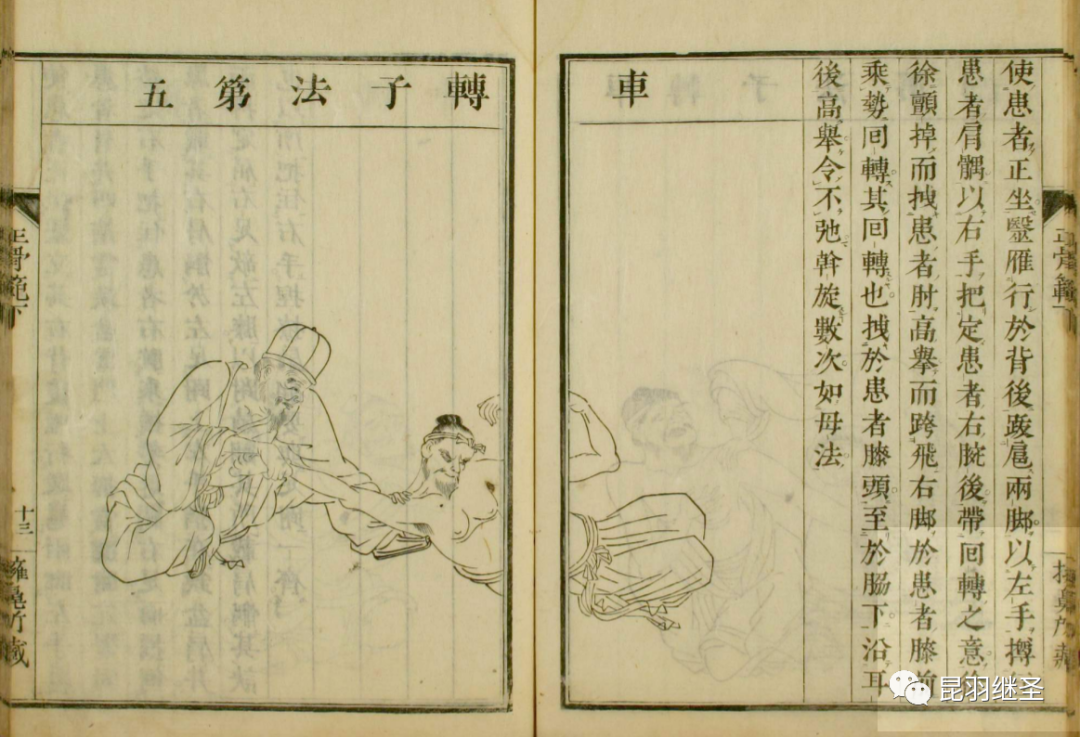 使患者正坐毉雁行於背後踆扈兩脚以左手撙
患者肩髃以右手把定患者右腕後帶回轉之意
徐顫掉而拽患者肘高擧而跨飛右脚於患者膝前
乘勢回轉其回轉也拽於患者膝頭至於脇下沿耳
後高擧令不弛斡旋數次如母法
車
轉子法第五
正骨範下
十三
正骨範下
昆羽继圣